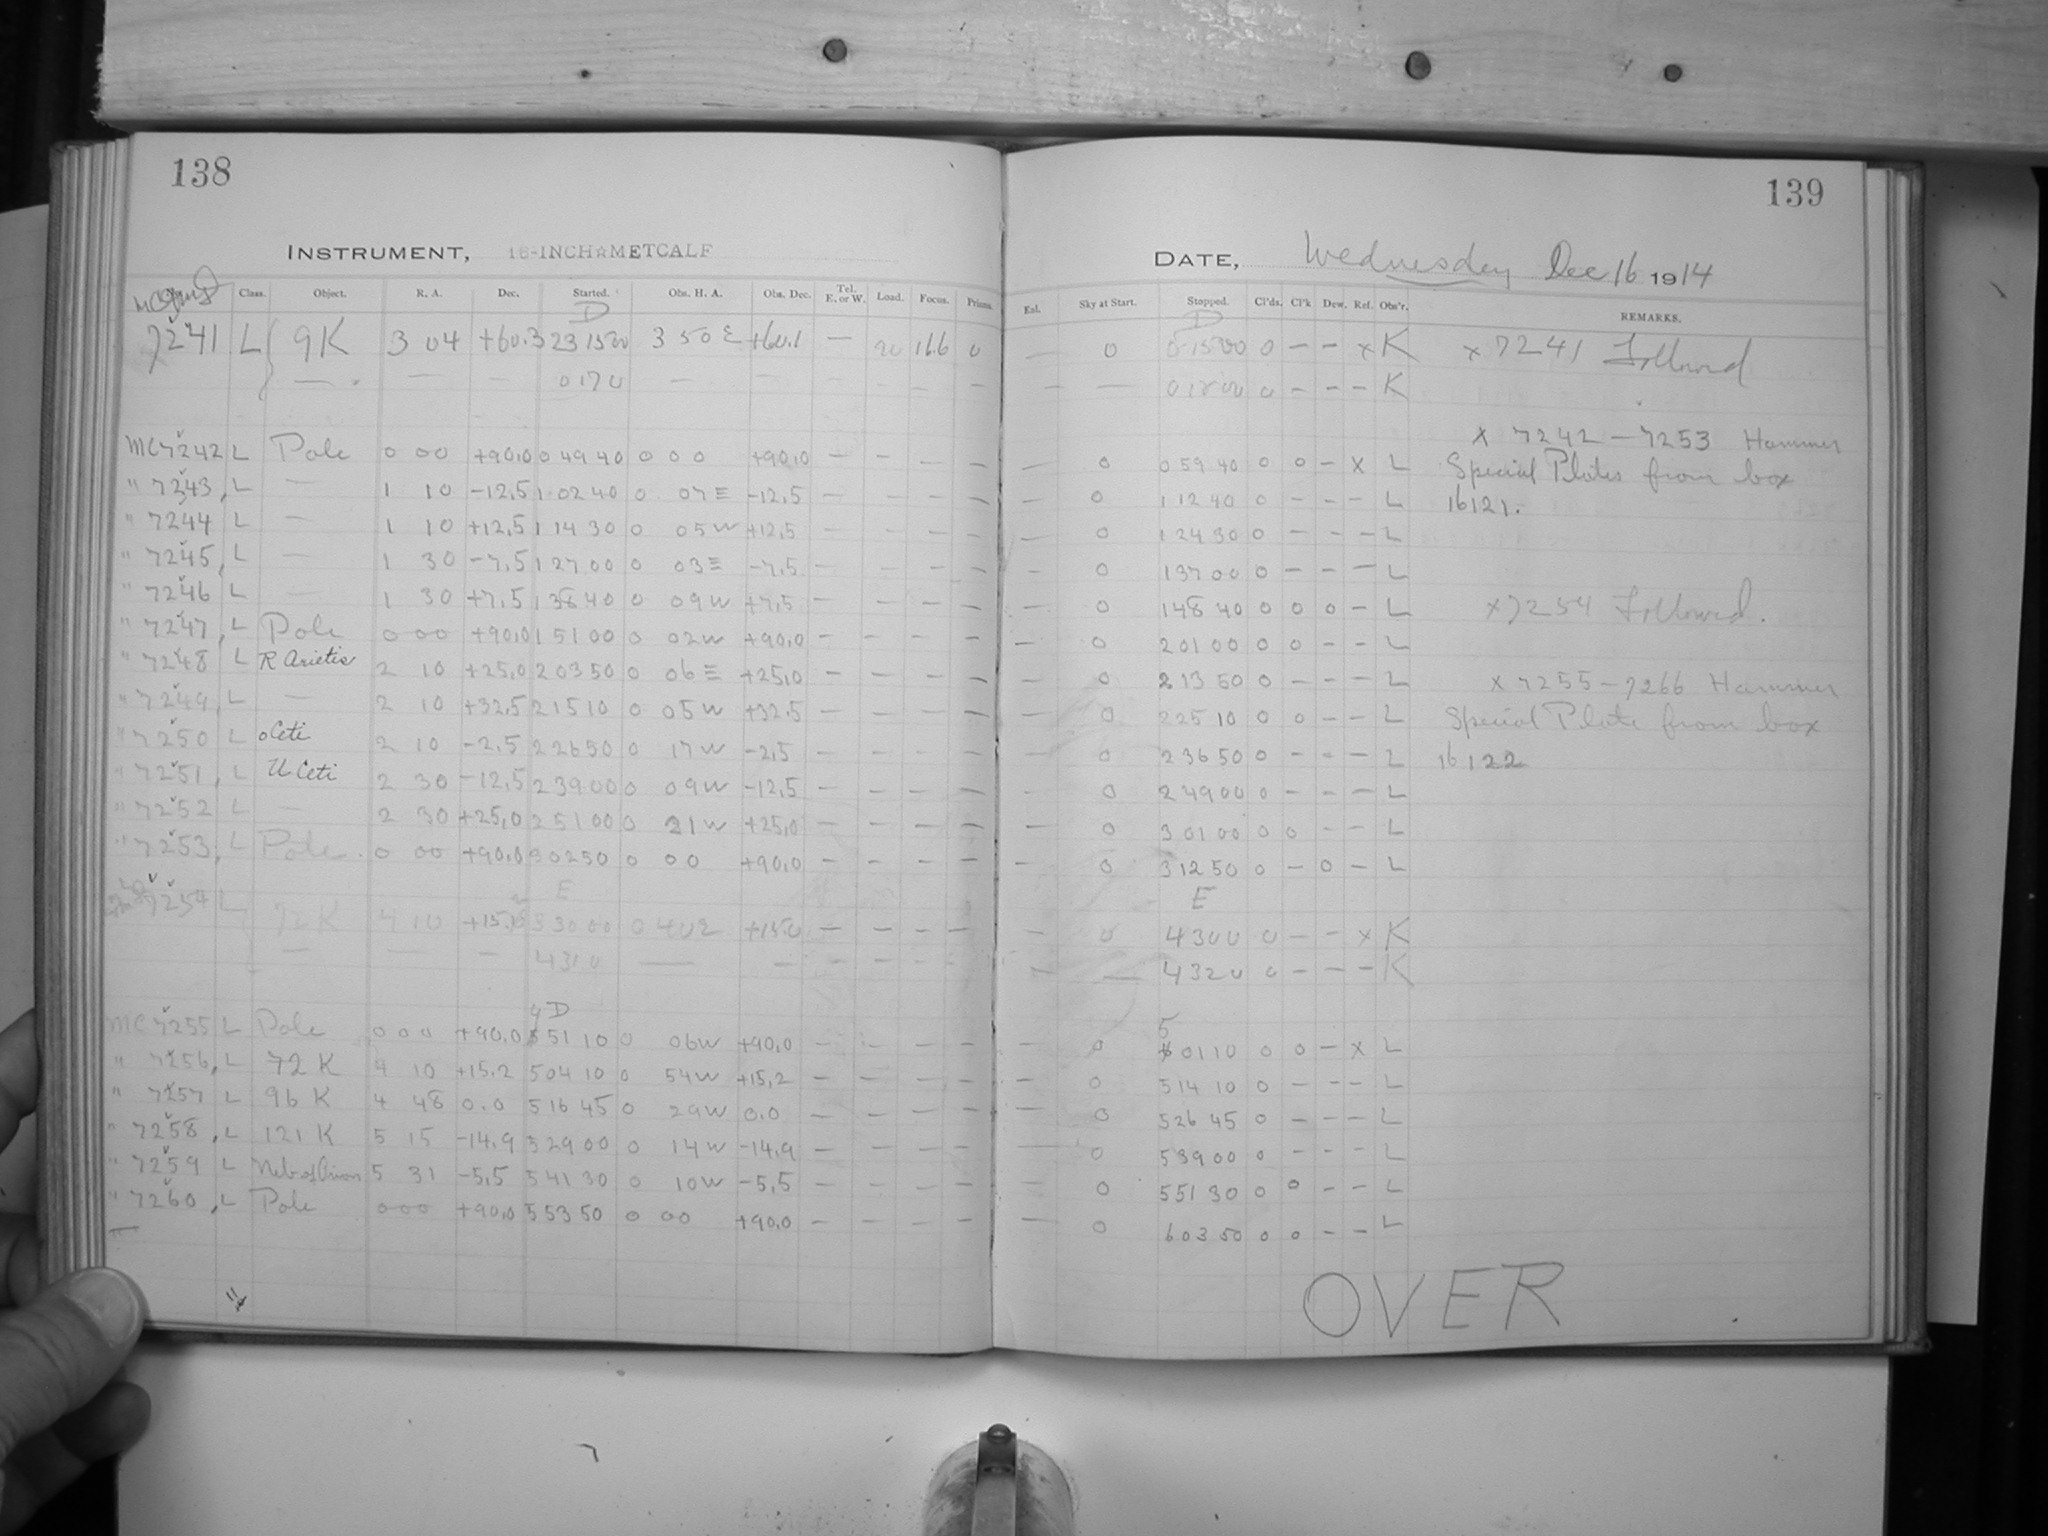 138
INSTRUMENT, 16-INCH☆METCALF
Class. Object. R. A. Dec. Started. Obs. H. A. Obs. Dec. Tel. E. or W. Load. Focus. Prisms.
D
7241 L 9K 3 04 +60.3 23 15 00 3 50 E +60.1 — 20 16.6 0
— — — 0 17 0 — —
MC 7242 L Pole 0 00 +90,0 0 49 40 0 00 +90,0 — — — —
" 7243, L — 1 10 -12,5 1 02 40 0 07 E -12,5 — — — —
" 7244 L — 1 10 +12,5 1 14 30 0 05 W +12,5 — — — —
" 7245, L — 1 30 -7,5 1 27 00 0 03 E -7,5 — — — —
" 7246 L — 1 30 +7,5 1 38 40 0 09 W +7,5 — — — —
" 7247, L Pole 0 00 +90,0 1 51 00 0 02 W +90,0 — — — —
" 7248 L R Arietis 2 10 +25,0 2 03 50 0 06 E +25,0 — — — —
" 7249, L — 2 10 +32,5 2 15 10 0 05 W +32,5 — — — —
" 7250 L o Ceti 2 10 -2,5 2 26 50 0 17 W -2,5 — — — —
" 7251, L U Ceti 2 30 -12,5 2 39 00 0 09 W -12,5 — — — —
" 7252 L — 2 30 +25,0 2 51 00 0 21 W +25,0 — — — —
" 7253, L Pole 0 00 +90,0 3 02 50 0 00 +90,0 — — — —
E
7254 L 72 K 4 10 +15. 3 30 00 0 40 E +15.0 — — — —
— — — 4 31 0 — — — — — —
4 D
MC 7255 L Pole 0 00 +90,0 51 10 0 06 W +90,0 — — — —
" 7256, L 72 K 4 10 +15.2 5 04 10 0 54 W +15,2 — — — —
" 7257 L 96 K 4 48 0.0 5 16 45 0 29 W 0.0 — — — —
" 7258, L 121 K 5 15 -14.9 5 29 00 0 14 W -14.9 — — — —
" 7259 L Neb of Orion 5 31 -5,5 5 41 30 0 10 W -5,5 — — — —
" 7260, L Pole 0 00 +90,0 5 53 50 0 00 +90,0 — — — —
139
DATE, Wednesday Dec 16 1914
Exl. Sky at Start. Stopped. Cl'ds. Cl'k Dew. Ref. Obs'r. REMARKS.
D
— 0 0 15 00 0 — — x K x 7241 Followed
— — 0 18 00 0 — — — K
x 7242 — 7253 Hammer
— 0 0 59 40 0 0 — x L Special Plates from box
— 0 1 12 40 0 — — — L 16121.
— 0 1 24 30 0 — — — L
— 0 1 37 00 0 — — — L
— 0 1 48 40 0 0 0 — L x 7254 Followed.
— 0 2 01 00 0 0 — — L
— 0 2 13 50 0 — — — L x 7255 — 7266 Hammer
— 0 2 25 10 0 0 — — L Special Plate from box
— 0 2 36 50 0 — — — L 16122
— 0 2 49 00 0 — — — L
— 0 3 01 00 0 0 — — L
— 0 3 12 50 0 — 0 — L
E
— 0 4 30 0 0 — — x K
— — 4 32 0 0 — — — K
5
— 0 01 10 0 0 — x L
— 0 5 14 10 0 — — — L
— 0 5 26 45 0 — — — L
— 0 5 39 00 0 — — — L
— 0 5 51 30 0 0 — — L
— 0 6 03 50 0 0 — — L
OVER